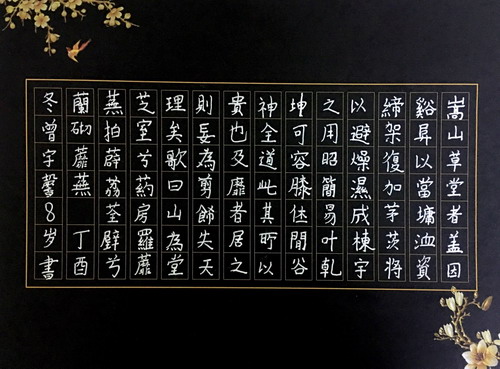 嵩山草堂者盖因
谿以當墉洫資
締架復加茅茨將
以避燥濕成棟宇
之用昭簡易叶乾
坤可容膝休閒谷
神全道此其所以
貴也及靡者居之
則妄為剪飾失天
理矣歌曰山為堂
芝室兮葯房羅蘼
蕪拍薜荔荃壁兮
蘭砌蘼蕪 丁酉
冬曾宇馨8岁書